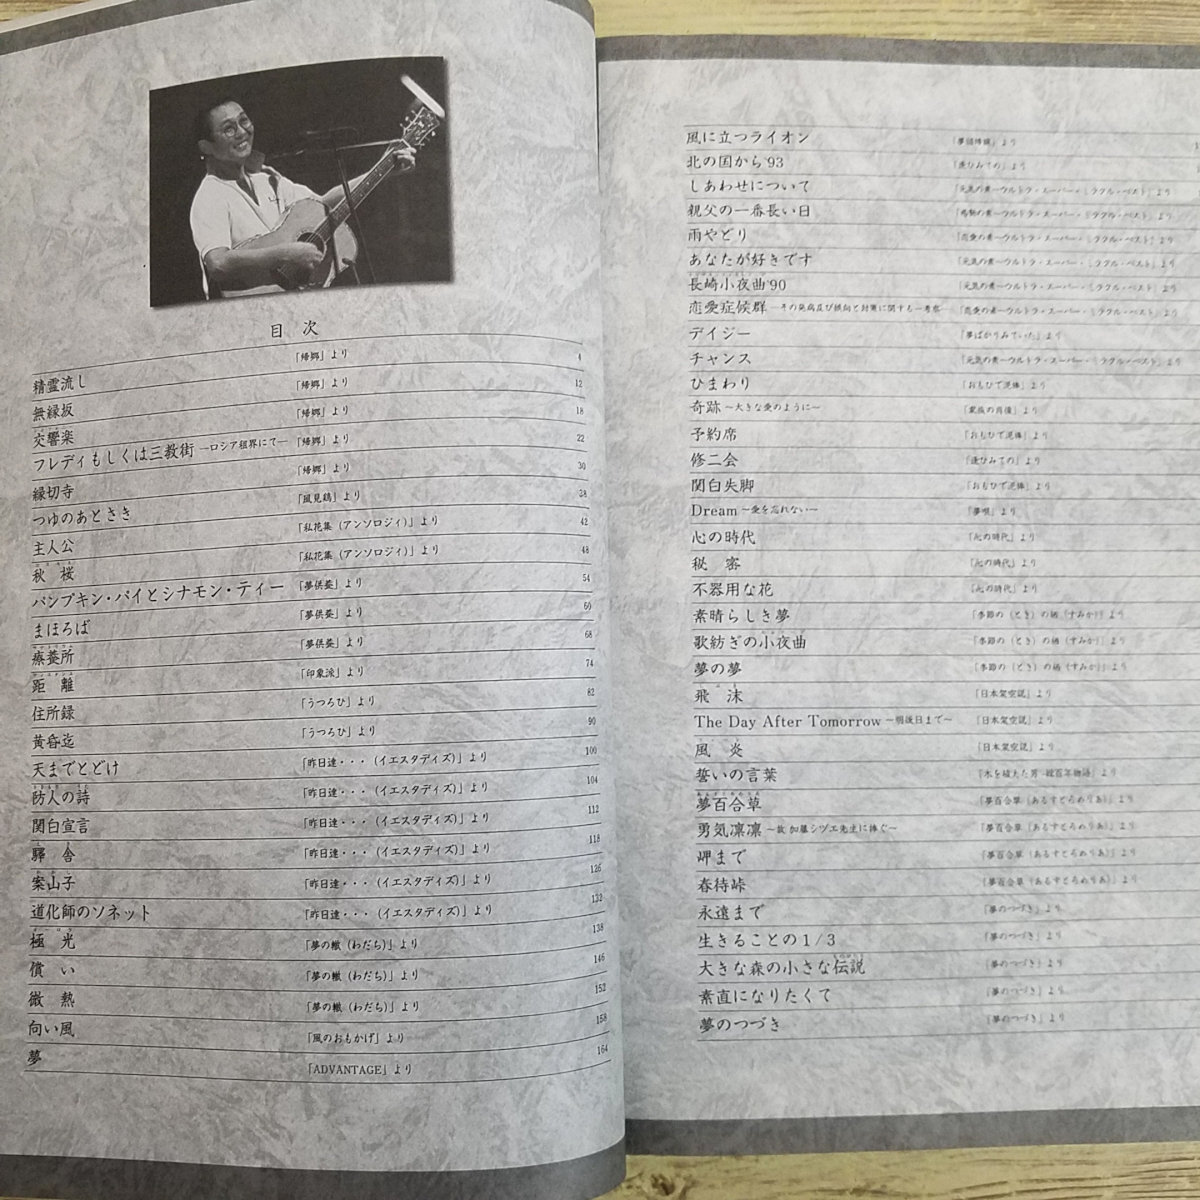 目次
精霊流し 「帰郷」より 4
無縁坂 「帰郷」より 12
交響楽 「帰郷」より 18
フレディもしくは三教街 ―ロシア租界にて― 「帰郷」より 22
縁切寺 「帰郷」より 30
つゆのあとさき 「風見鶏」より 38
主人公 「私花集（アンソロジィ）」より 42
秋桜 「私花集（アンソロジィ）」より 48
パンプキン・パイとシナモン・ティー 「夢供養」より 54
まほろば 「夢供養」より 60
療養所 「夢供養」より 68
距離 「印象派」より 74
住所録 「うつろひ」より 82
黄昏迄 「うつろひ」より 90
天までとどけ 「昨日達・・・（イエスタデイズ）」より 100
防人の詩 「昨日達・・・（イエスタデイズ）」より 104
関白宣言 「昨日達・・・（イエスタデイズ）」より 112
驛舎 「昨日達・・・（イエスタデイズ）」より 118
案山子 「昨日達・・・（イエスタデイズ）」より 126
道化師のソネット 「昨日達・・・（イエスタデイズ）」より 132
極光 「夢の轍（わだち）」より 138
償い 「夢の轍（わだち）」より 146
微熱 「夢の轍（わだち）」より 152
向い風 「風のおもかげ」より 158
夢 「ADVANTAGE」より 164
風に立つライオン 「夢回帰線」より
北の国から'93 「逢ひみての」より
しあわせについて 「元気の素～ウルトラ・スーパー・ミラクル・ベスト」より
親父の一番長い日 「感動の素～ウルトラ・スーパー・ミラクル・ベスト」より
雨やどり 「恋愛の素～ウルトラ・スーパー・ミラクル・ベスト」より
あなたが好きです 「元気の素～ウルトラ・スーパー・ミラクル・ベスト」より
長崎小夜曲'90 「元気の素～ウルトラ・スーパー・ミラクル・ベスト」より
恋愛症候群 ―その発病及び傾向と対策に関する一考察― 「恋愛の素～ウルトラ・スーパー・ミラクル・ベスト」より
デイジー 「夢ばかりみていた」より
チャンス 「元気の素～ウルトラ・スーパー・ミラクル・ベスト」より
ひまわり 「おもひで泥棒」より
奇跡 ～大きな愛のように～ 「家族の肖像」より
予約席 「おもひで泥棒」より
修二会 「逢ひみての」より
関白失脚 「おもひで泥棒」より
Dream ～愛を忘れない～ 「夢唄」より
心の時代 「心の時代」より
秘密 「心の時代」より
不器用な花 「心の時代」より
素晴らしき夢 「季節の（とき）の栖（すみか）」より
歌紡ぎの小夜曲 「季節の（とき）の栖（すみか）」より
夢の夢 「季節の（とき）の栖（すみか）」より
飛沫 「日本架空説」より
The Day After Tomorrow ～明後日まで～ 「日本架空説」より
風炎 「日本架空説」より
誓いの言葉 「木を植えた男 雑百年物語」より
夢百合草 「夢百合草（あるすとろめりあ）」より
勇気凛凛 ～故 加藤シヅエ先生に捧ぐ～ 「夢百合草（あるすとろめりあ）」より
岬まで 「夢百合草（あるすとろめりあ）」より
春待峠 「夢百合草（あるすとろめりあ）」より
永遠まで 「夢のつづき」より
生きることの1/3 「夢のつづき」より
大きな森の小さな伝説 「夢のつづき」より
素直になりたくて 「夢のつづき」より
夢のつづき 「夢のつづき」より